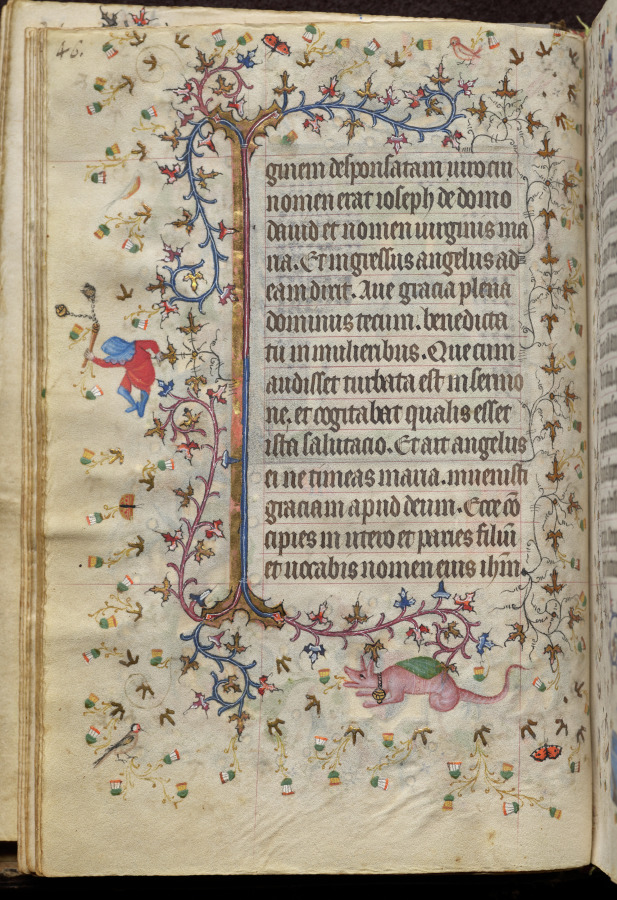 46.
ginem desponsatam uiro cui
nomen erat ioseph de domo
dauid et nomen uirginis ma
ria. Et ingressus angelus ad
eam dixit. Aue gracia plena
dominus tecum. benedicta
tu in mulieribus. Que cum
audisset turbata est in sermo
ne. et cogitabat qualis esset
ista salutacio. Et ait angelus
ei ne timeas maria. inuenisti
graciam apud deum. Ecce cō
cipies in utero et paries filiū
et uocabis nomen eius ihm̄.